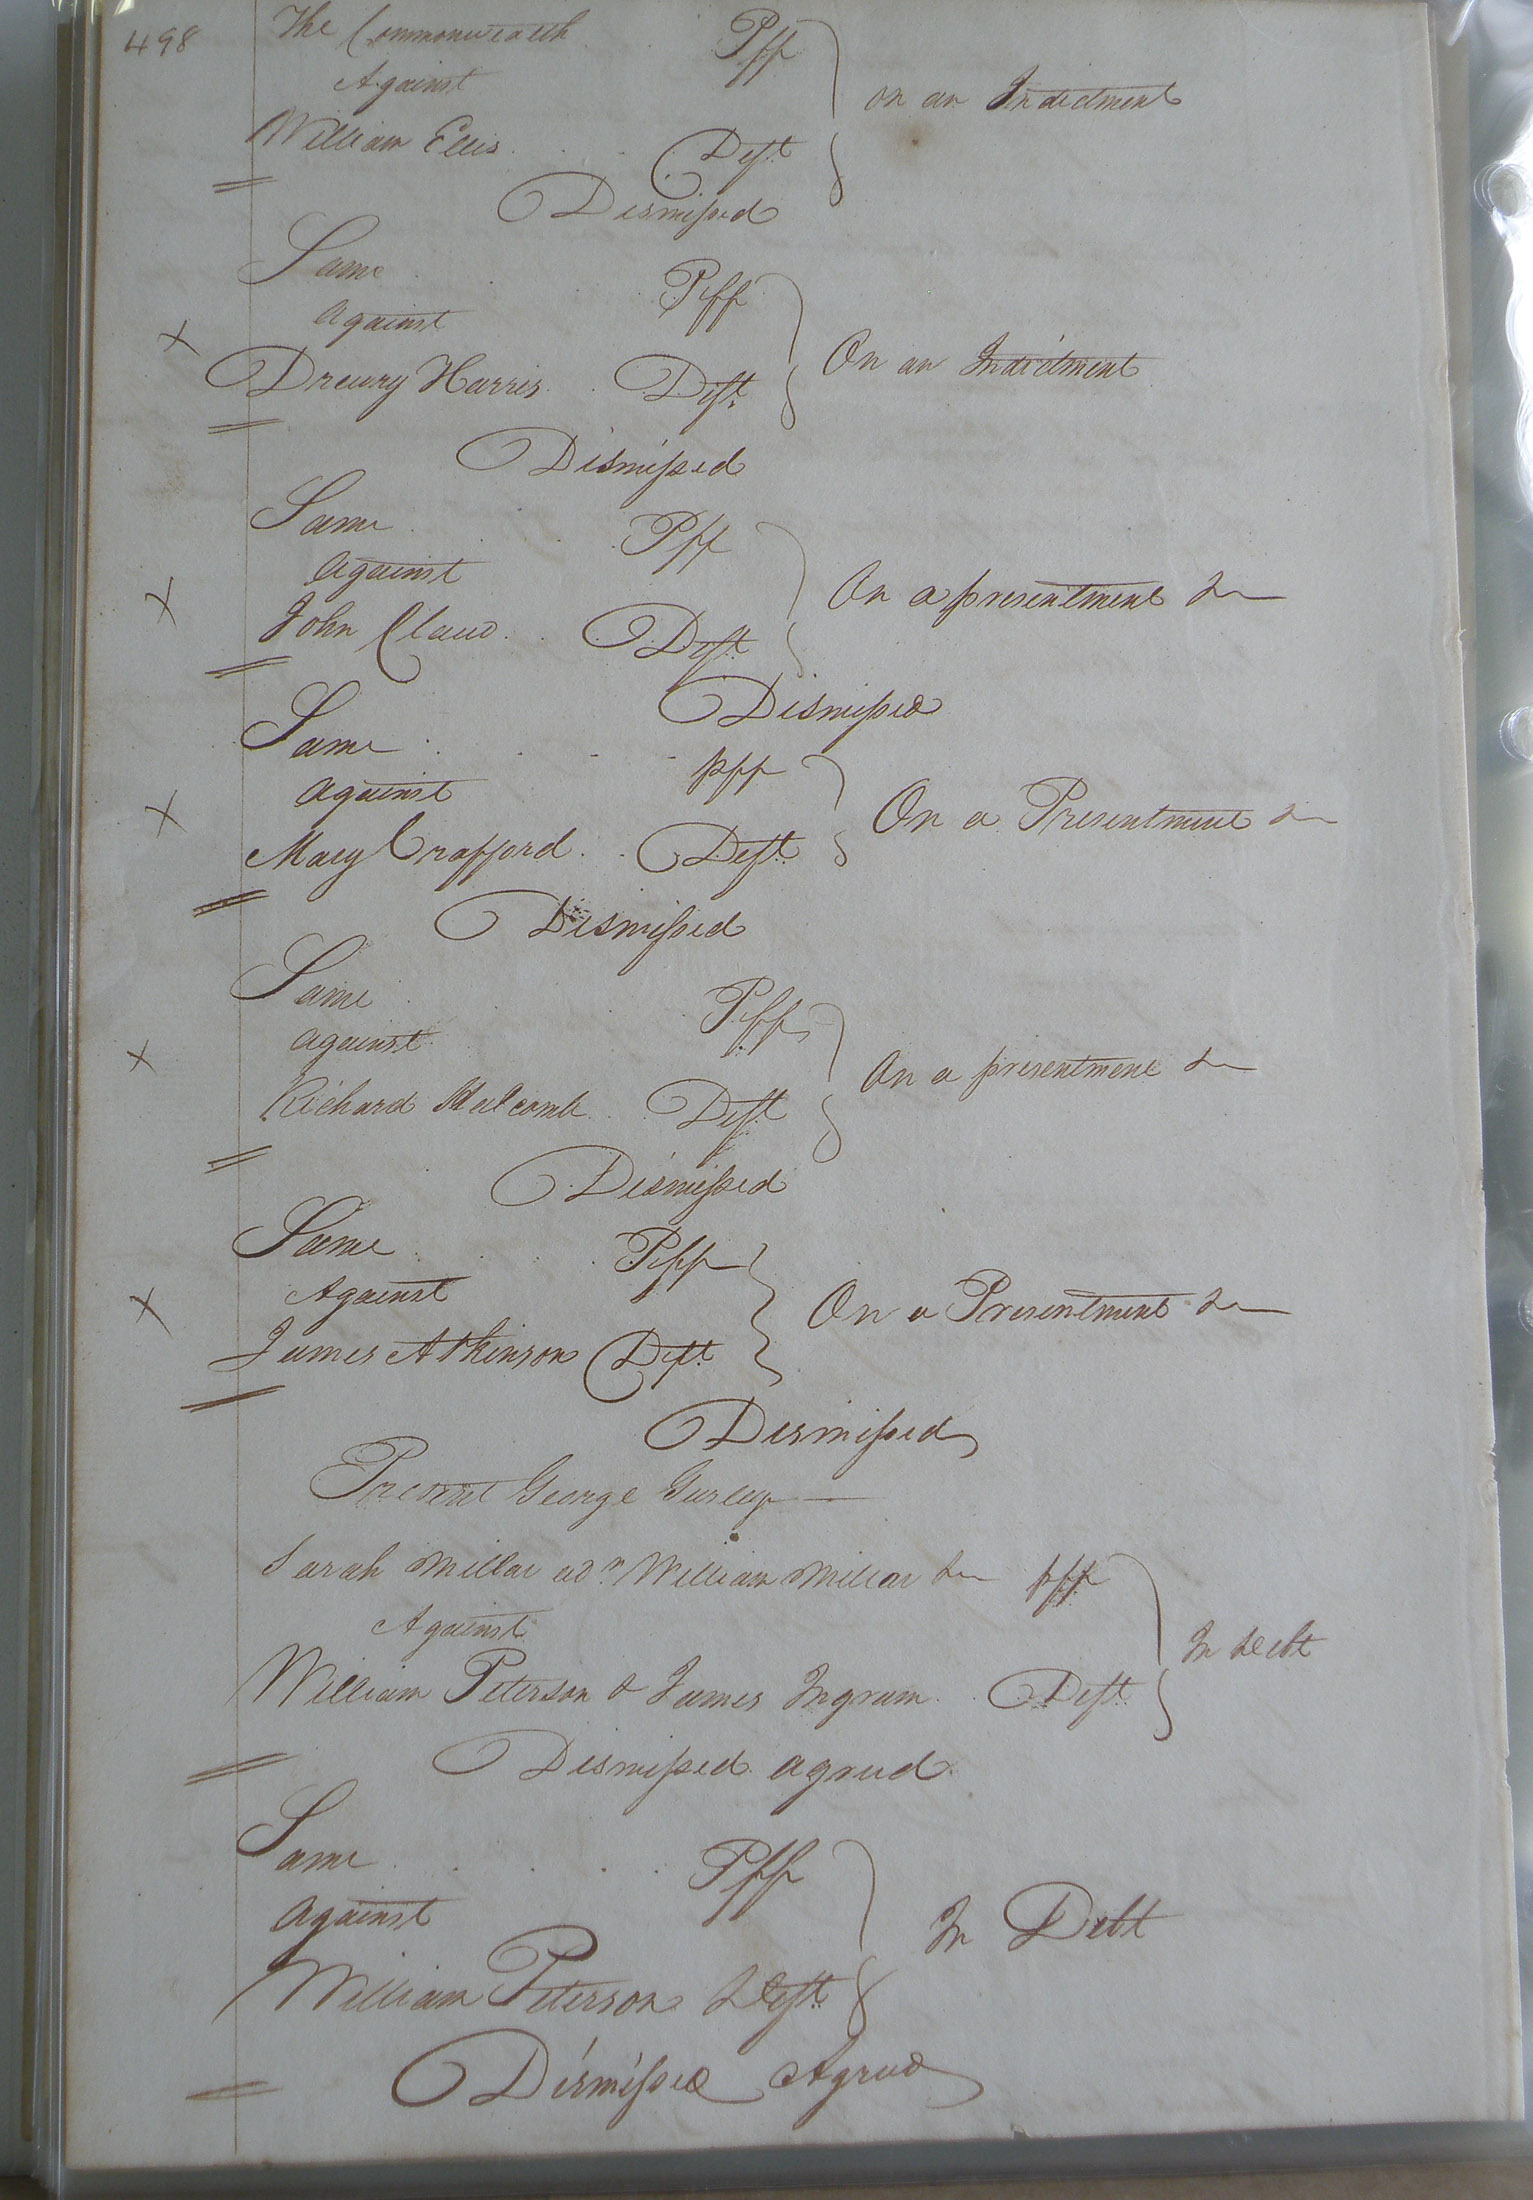 498
The Commonwealth Plff
Against
on an Indictment
William Ellis Deft
Dismissed
Same Plff
against
On an Indictment
X
Drewry Harris Deft
Dismissed
Same Plff
against
On a presentment &c
X
John Claud Deft
Dismissed
Same plff
against
On a Presentment &c
X
Mary Crafford Deft
Dismissed
Same Plff
against
On a presentment &c
X
Richard Halcomb Deft
Dismissed
Same Plff
Against
On a Presentment &c
X
James Atkinson Deft
Dismissed
Present George Gurley
Sarah Millar adr. William Millar &c plff
Against
In Debt
William Peterson & James Ingram Deft
Dismissed agreed
Same Plff
against
In Debt
William Peterson Deft
Dismissed Agreed